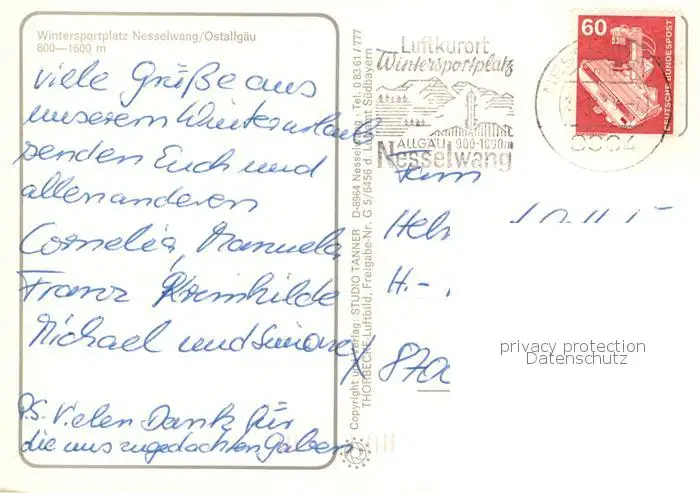 Wintersportplatz Nesselwang/Ostallgäu
800—1600 m
viele Grüße aus
unserem Winterurlaub
senden Euch und
allen anderen
Cornelia, Manuela
Franz Kreimhilde
Michael und Simone
P.S. Vielen Dank für
die uns zugedachten Gaben
Copyright und Verlag: STUDIO TANNER D-8964 Nesselwang · Tel. 0 83 61/777
THORBECKE-Luftbild, Freigabe-Nr. G 5/6456 d. Luftamt Südbayern
Luftkurort
Wintersportplatz
ALLGÄU 900-1600m
Nesselwang
60
DEUTSCHE BUNDESPOST
Fam
H. -
870
privacy protection
Datenschutz